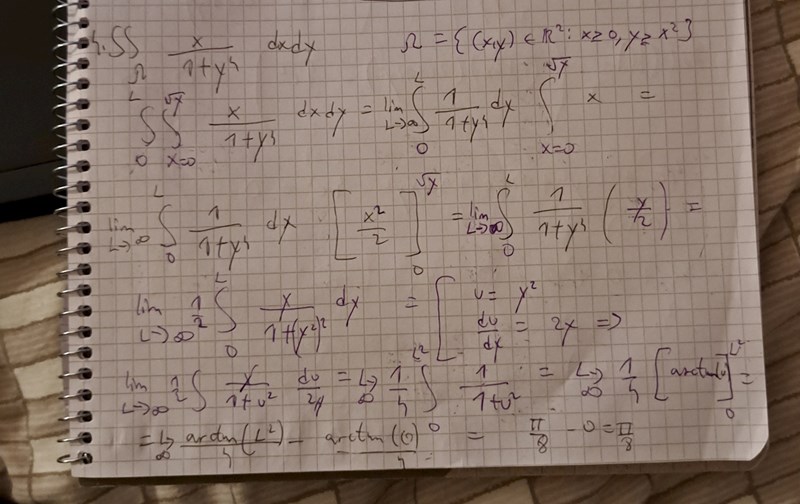 4. ∬_Ω x/(1+y⁴) dxdy Ω = {(x,y) ∈ ℝ²: x≥0, y≥x²}
∫_0^L ∫_{x=0}^{√y} x/(1+y⁴) dxdy = lim_{L→∞} ∫_0^L 1/(1+y⁴) dy ∫_{x=0}^{√y} x =
lim_{L→∞} ∫_0^L 1/(1+y⁴) dy [x²/2]_0^{√y} = lim_{L→∞} ∫_0^L 1/(1+y⁴) (y/2) =
lim_{L→∞} 1/2 ∫_0^L y/(1+(y²)²) dy = [ u = y²
du/dy = 2y ⇒
lim_{L→∞} 1/2 ∫ y/(1+u²) du/2y = L→∞ 1/4 ∫_0^{L²} 1/(1+u²) = L→∞ 1/4 [arctan(u)]_0^{L²} =
= L→∞ arctan(L²)/4 − arctan(0)/4 = π/8 − 0 = π/8